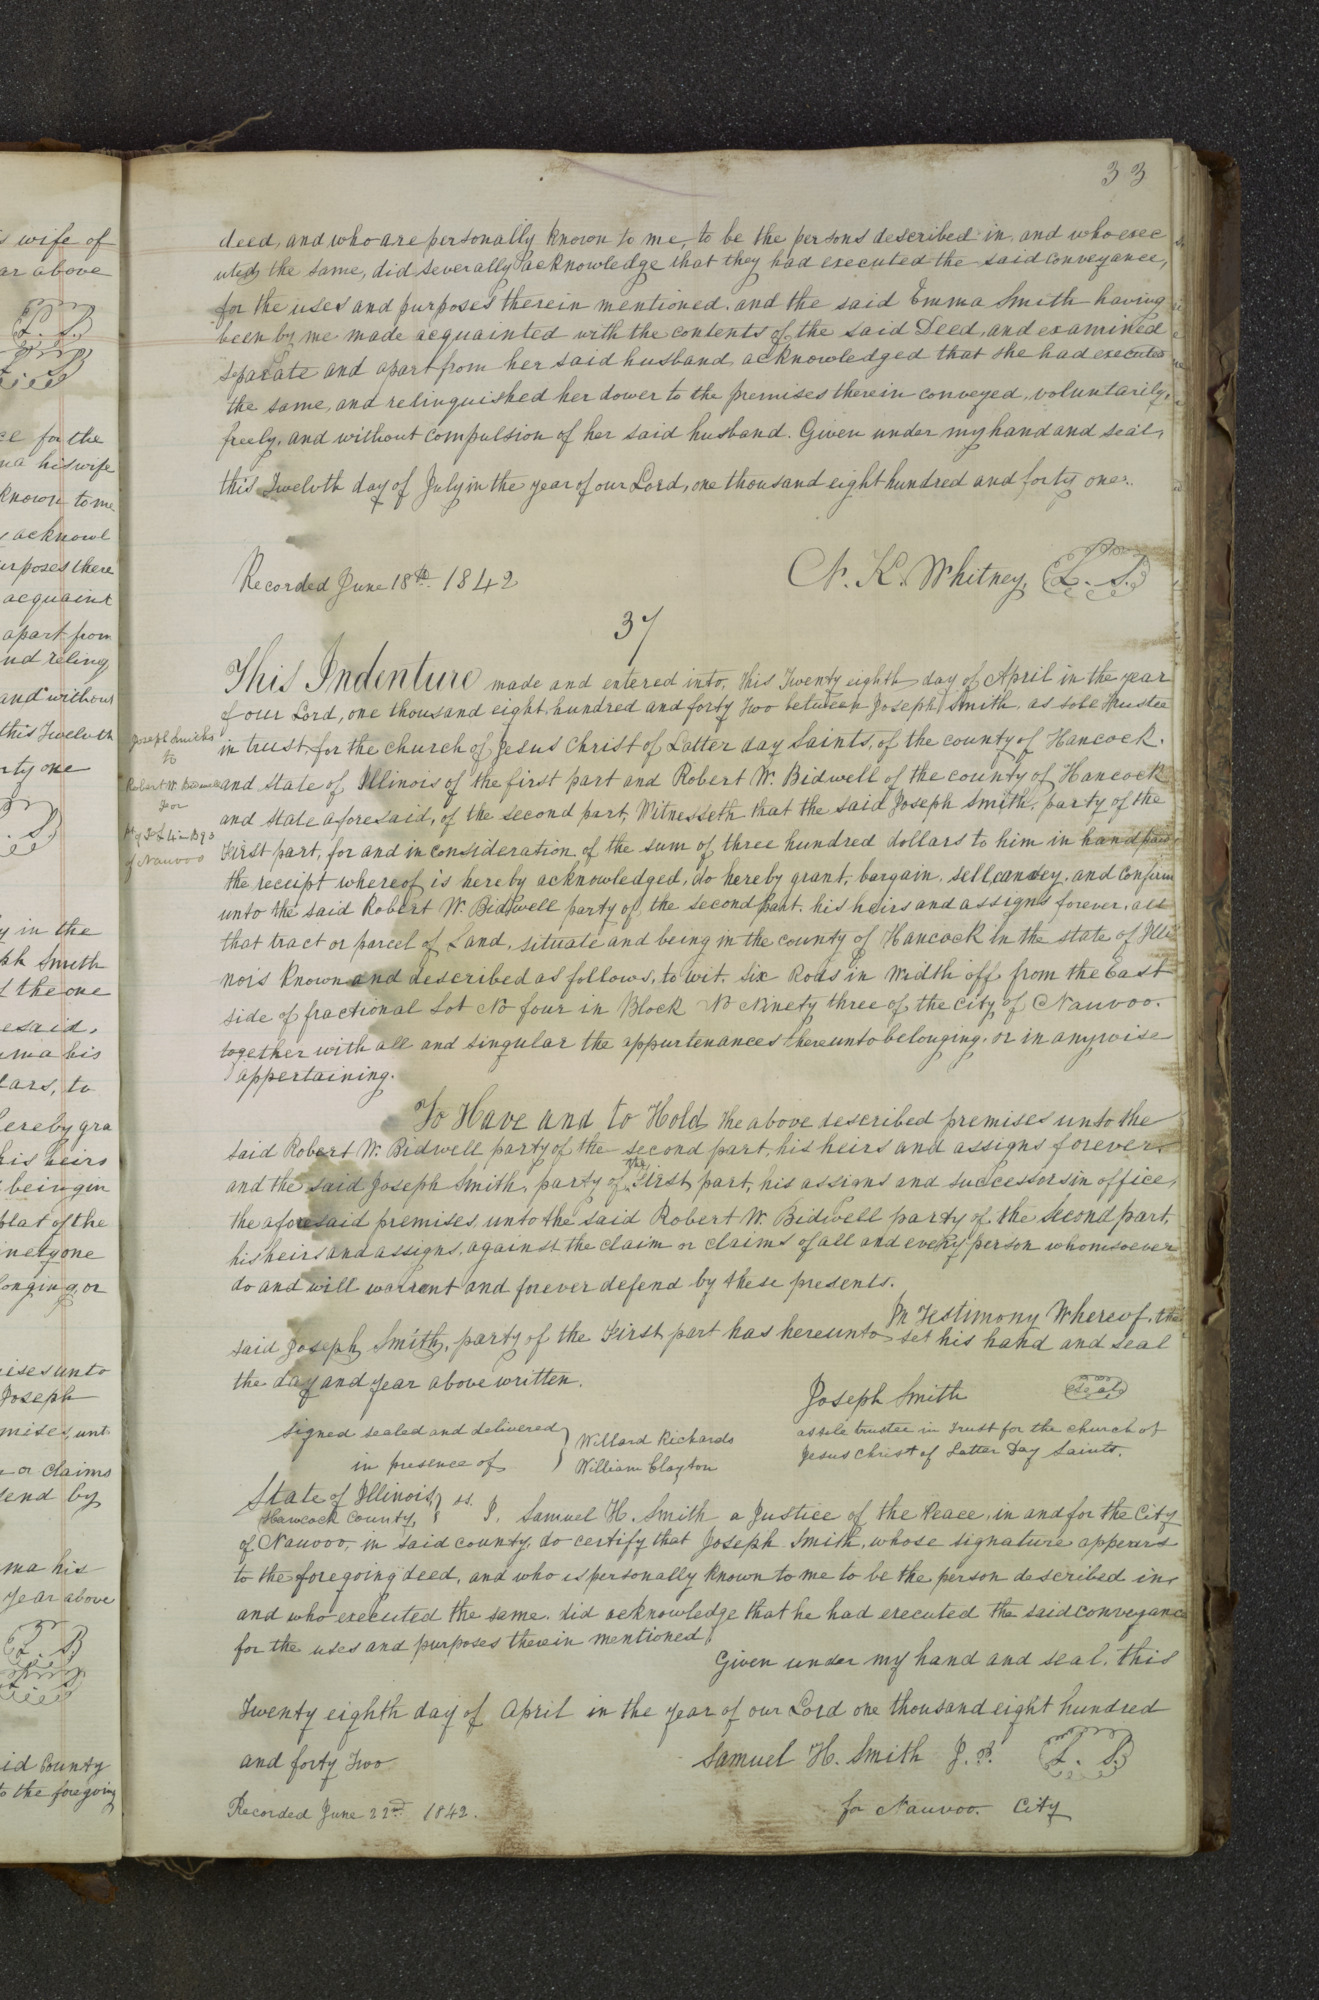 33
deed, and who are personally known to me, to be the persons described in, and who exec
uted the same, did severally acknowledge that they had executed the said conveyance,
for the uses and purposes therein mentioned. and the said Emma Smith having
been by me made acquainted with the contents of the said Deed, and examined
separate and apart from her said husband, acknowledged that she had executed
the same, and relinquished her dower to the premises therein conveyed, voluntarily,
freely, and without compulsion of her said husband. Given under my hand and seal,
this Twelvth day of July in the year of our Lord, one thousand eight hundred and forty one.
Recorded June 18th 1842
N. K. Whitney, L. S.
37
This Indenture made and entered into, this Twenty eighth day of April in the year
of our Lord, one thousand eight hundred and forty Two between Joseph Smith, as sole Trustee
in trust, for the church of Jesus Christ of Latter day Saints, of the county of Hancock.
and state of Illinois of the first part and Robert W. Bidwell of the county of Hancock
and state aforesaid, of the second part, Witnesseth that the said Joseph Smith, party of the
First part, for and in consideration of the sum of three hundred dollars to him in hand paid
the receipt whereof is hereby acknowledged, do hereby grant, bargain, sell, convey, and Confirm
unto the said Robert W. Bidwell party of the second part, his heirs and assigns forever, all
that tract or parcel of Land, situate and being in the county of Hancock in the state of Illi
nois known and described as follows, to wit. six Rods in width off from the East
side of fractional Lot No four in Block No Ninety three of the city of Nauvoo.
together with all and singular the appurtenances thereunto belonging, or in anywise
appertaining.
To Have and to Hold the above described premises unto the
said Robert W. Bidwell party of the second part, his heirs and assigns forever.
and the said Joseph Smith, party of the First part, his assigns and successors in office,
the aforesaid premises, unto the said Robert W. Bidwell party of the Second part,
his heirs and assigns, against the claim or claims of all and every person whomsoever
do and will warrant and forever defend by these presents.
In Testimony Whereof, the
said Joseph Smith, party of the First part has hereunto set his hand and seal
the day and year above written.
Joseph Smith seal
as sole trustee in Trust for the church of
Jesus Christ of Latter Day Saints.
Signed sealed and delivered
in presence of
Willard Richards
William Clayton
State of Illinois
Hancock County, } ss. I, Samuel H. Smith a Justice of the Peace, in and for the City
of Nauvoo, in said county, do certify that Joseph Smith, whose signature appears
to the foregoing deed, and who is personally known to me to be the person described in,
and who executed the same, did acknowledge that he had executed the said conveyance
for the uses and purposes therein mentioned.
Given under my hand and seal, this
Twenty eighth day of April in the year of our Lord one thousand eight hundred
and forty Two
Samuel H. Smith J. P. L. S.
for Nauvoo City
Recorded June 22nd 1842.
Joseph Smith
to
Robert W.
for
of Nauvoo
wife of
ar above
L. S.
ce for the
ma his wife
known to me
acknowl
urposes there
acquaint
apart from
nd reling
and without
this Twelvth
rty one
y in the
ph Smith
f the one
esaid,
ma his
lars, to
hereby gra
his heirs
being in
plat of the
inety one
longing, or
ises unto
Joseph
mises, unt
or claims
fend by
ma his
year above
L. S.
id County
to the foregoing